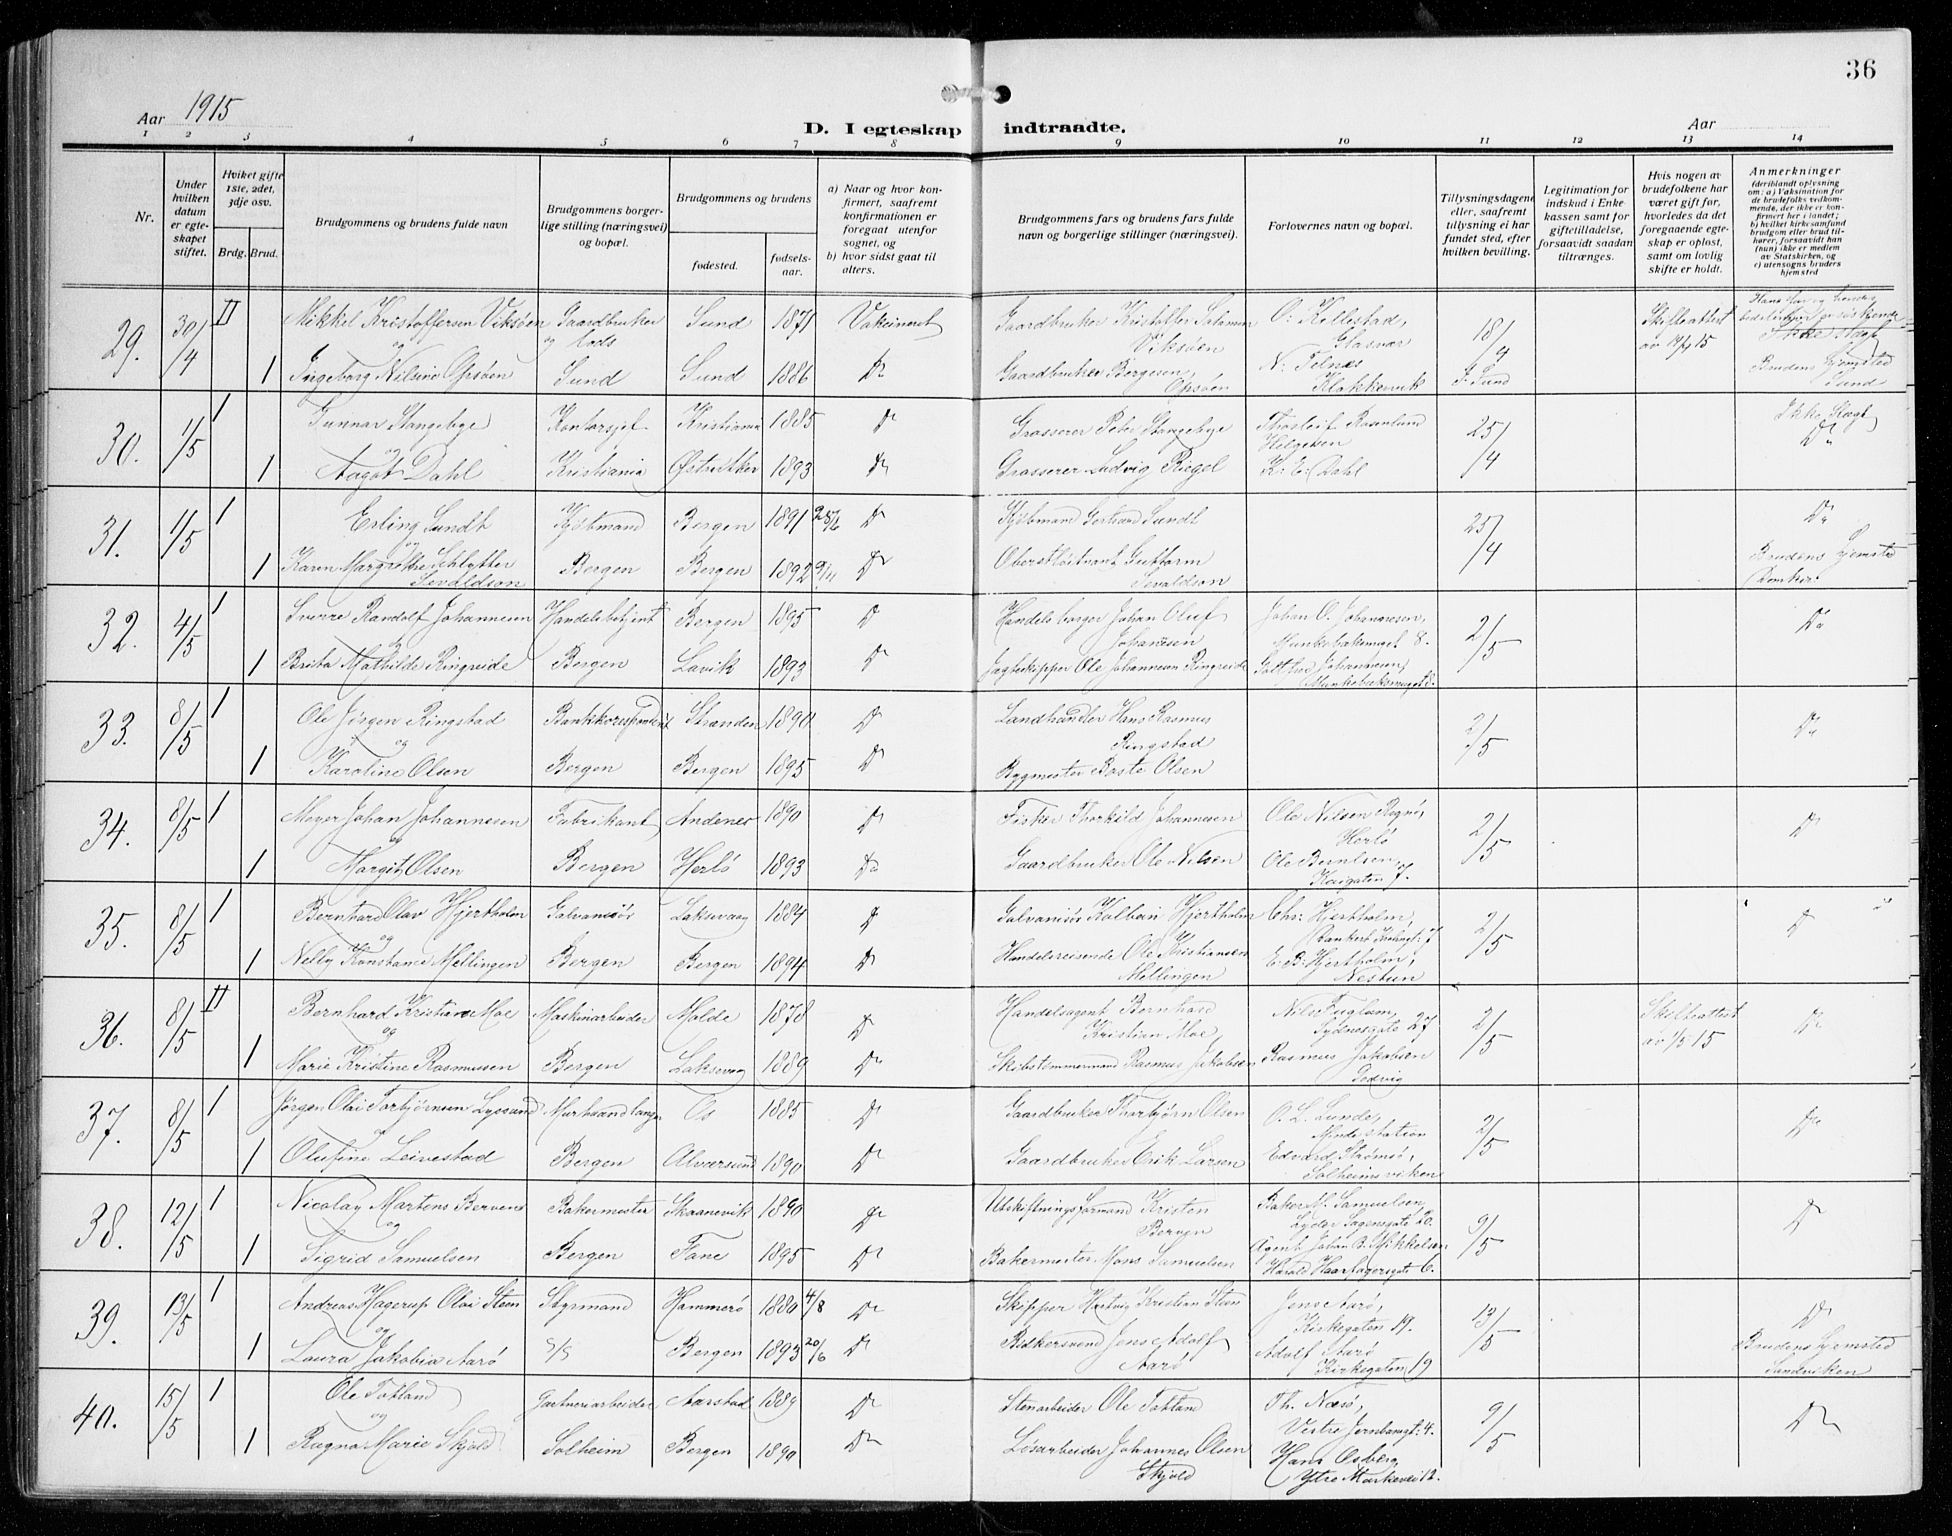 36
Aar 1915
D. I egteskap indtraadte.
Aar
1 2 3 4 5 6 7 8 9 10 11 12 13 14
Nr.
Under hvilken datum er egteskapet stiftet.
Hviket gifte 1ste, 2det, 3dje osv.
Brdg. Brud.
Brudgommens og brudens fulde navn
Brudgommens borgerlige stilling (næringsvei) og bopæl.
Brudgommens og brudens
fødested.
fødselsaar.
a) Naar og hvor konfirmert, saafremt konfirmationen er foregaat utenfor sognet, og
b) hvor sidst gaat til alters.
Brudgommens fars og brudens fars fulde navn og borgerlige stillinger (næringsvei).
Forlovernes navn og bopæl.
Tillysningsdagene eller, saafremt tillysning ei har fundet sted, efter hvilken bevilling.
Legitimation for indskud i Enkekassen samt for giftetilladelse, forsaavidt saadan tiltrænges.
Hvis nogen av brudefolkene har været gift før, hvorledes da det foregaaende egteskap er opløst, samt om lovlig skifte er holdt.
Anmerkninger
(deriblandt oplysning om: a) Vaksination for de brudefolks vedkommende, der ikke er konfirmert her i landet; b) hvilket kirkesamfund brudgom eller brud tilhører, forsaavidt han (hun) ikke er medlem av Statskirken, og c) utensogns bruders hjemsted
29. 30/4 II Mikkel Kristoffersen Viksøen Gaardbruker og Lods Sund 1871 Vakcineret Gaardbruker Kristoffer Salamonsen Viksøen O. Kallestad, Glasvær 18/4 Skifteattest av 14/4 15
og
1 Ingeborg Nilsine Opsøen Sund Sund 1886 Do Gaardbruker Bergesen, Opsøen N. Telnes Klokkervik S. Sund Brudens hjemsted Sund
30. 1/5 1 Gunnar Stangebye Kontorsjef Kristiania 1885 Do Grosserer Peter Stangebye Thorleif Rosenlund Helgesen 25/4 Ikke Slægt Do
og
1 Aagot Dahl Kristiania Østre Toten 1893 Do Grosserer Ludvig Riegel K. E. Dahl
31. 1/5 1 Erling Sundt Kjøbmand Bergen 1891 28/6 Do Kjøbmand Gerhard Sundt 25/4 Do
og
1 Karen Margrethe Schlytter Sevaldson Bergen Bergen 1892 9/11 Do Oberstløitnant Guttorm Sevaldson Brudens hjemsted Domkir.
32. 4/5 1 Sverre Randolf Johannesen Handelsbetjent Bergen 1895 Do Handelsborger Johan Oluf Johannesen Johan O. Johannesen, Munkebæksmuget 8. 2/5 Do
og
1 Brita Mathilde Ringreide Bergen Lavik 1893 Do Jagteskipper Ole Johannesen Ringreide Johannesen, Munkebæksmuget 8.
33. 8/5 1 Ole Jørgen Ringstad Bankkorespondent Stranden 1890 Do Landhandler Hans Rasmus Ringstad 2/5 Do
og
1 Karoline Olsen Bergen Bergen 1895 Do Bygmester Baste Olsen
34. 8/5 1 Meyer Johan Johannesen Fabrikant Andenes 1890 Do Fisker Thorkild Johannesen Ole Nilsen Rognø, Herlø 2/5 Do
og
1 Margit Olsen Bergen Herlø 1893 Do Gaardbruker Ole Nilsen Ole Berntsen, Kaigaten 7.
35. 8/5 1 Bernhard Olav Hjertholm Galvanisør Laksevaag 1884 Do Galvanisør Kolbein Hjertholm Chr. Hjertholm, 2/5 Do
og
1 Nelly Konstance Mellingen Bergen Bergen 1894 Do Handelsreisende Ole Kristiansen Mellingen E. B. Hjertholm, Nestun
36. 8/5 II Bernhard Kristian Moe Maskinarbeider Molde 1878 Do Handelsagent Bernhard Kristian Moe, Nils Fuglum, Sydnesgate 27 2/5 Skilteattest av 1/5 15 Do
og
1 Marie Kristine Rasmussen Bergen Laksevaag 1889 Do Skibstømmermand Rasmus Jakobsen Rasmus Jakobsen
37. 8/5 1 Jørgen Olai Torbjørnsen Lyssand Murhaandlanger Os 1885 Do Gaardbruker Thorbjørn Olsen O. L. Lunde, Minde station 2/5 Do
og
1 Olufine Leivestad Bergen Alværsund 1890 Do Gaardbruker Erik Larsen Edvard Strømsø, Solheimsviken
38. 12/5 1 Nicolay Martens Berven Bakermester Skaanevik 1890 Do Utskiftningsformand Kristen Berven Baker M. Samuelsen, Lyder Sagensgate 20. 9/5 Do
og
1 Sigrid Samuelsen Bergen Fane 1895 Do Bakermester Mons Samuelsen Agent Johan B. Mikkelsen Harald Haarfagersgate 6.
39. 13/5 1 Andreas Hagerup Olai Steen Styrmand Hammerø 1880 4/8 Do Skipper Hartvig Kristian Steen Jens Aarø, Kirkegaten 19. 13/5 Do
og
1 Laura Jakobia Aarø S/S Bergen 1893 20/6 Do Bødkersvend Jens Adolf Aarø Adolf Aarø Kirkegaten 19 Brudens hjemsted Sandviken
40. 15/5 1 Ole Totland Gartneriarbeider Aarstad 1889 Do Stenarbeider Ole Totland Th. Narø, Vestre Jernbanegt. 4. 9/5 Do
og
1 Ragna Marie Skjold Solheim Bergen 1890 Do Løsarbeider Johannes Olsen Skjold Hans Osberg, Ytre Markevei 12.